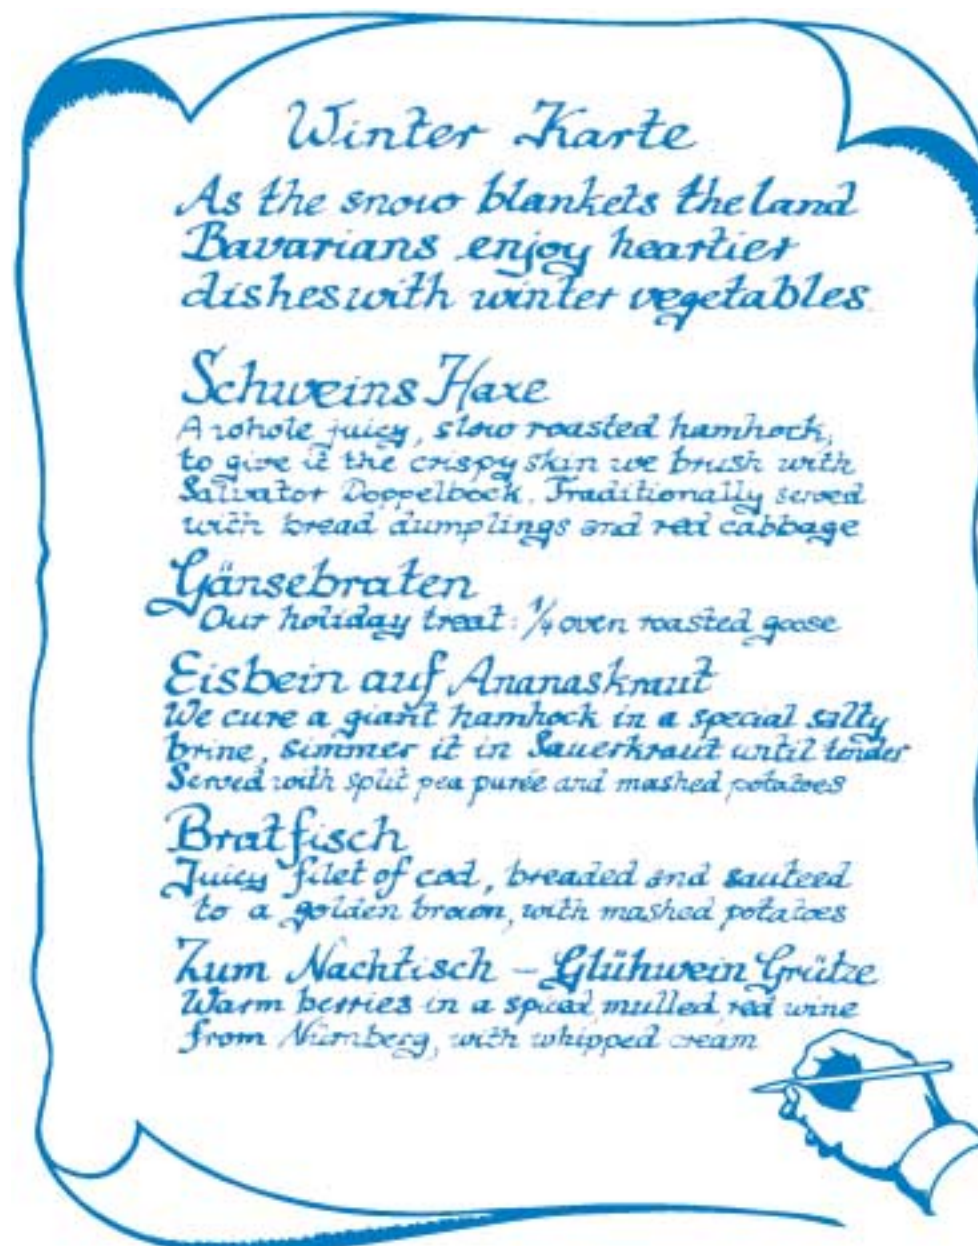 Winter Karte
As the snow blankets the land
Bavarians enjoy heartier
dishes with winter vegetables
Schweins Haxe
A whole juicy, slow roasted hamhock,
to give it the crispy skin we brush with
Salvator Doppelbock. Traditionally served
with bread dumplings and red cabbage
Gänsebraten
Our holiday treat: 1/4 oven roasted goose
Eisbein auf Ananaskraut
We cure a giant hamhock in a special salty
brine, simmer it in Sauerkraut until tender
Served with split pea purée and mashed potatoes
Bratfisch
Juicy filet of cod, breaded and sauteed
to a golden brown, with mashed potatoes
Zum Nachtisch – Glühwein Grütze
Warm berries in a spiced, mulled, red wine
from Nürnberg, with whipped cream